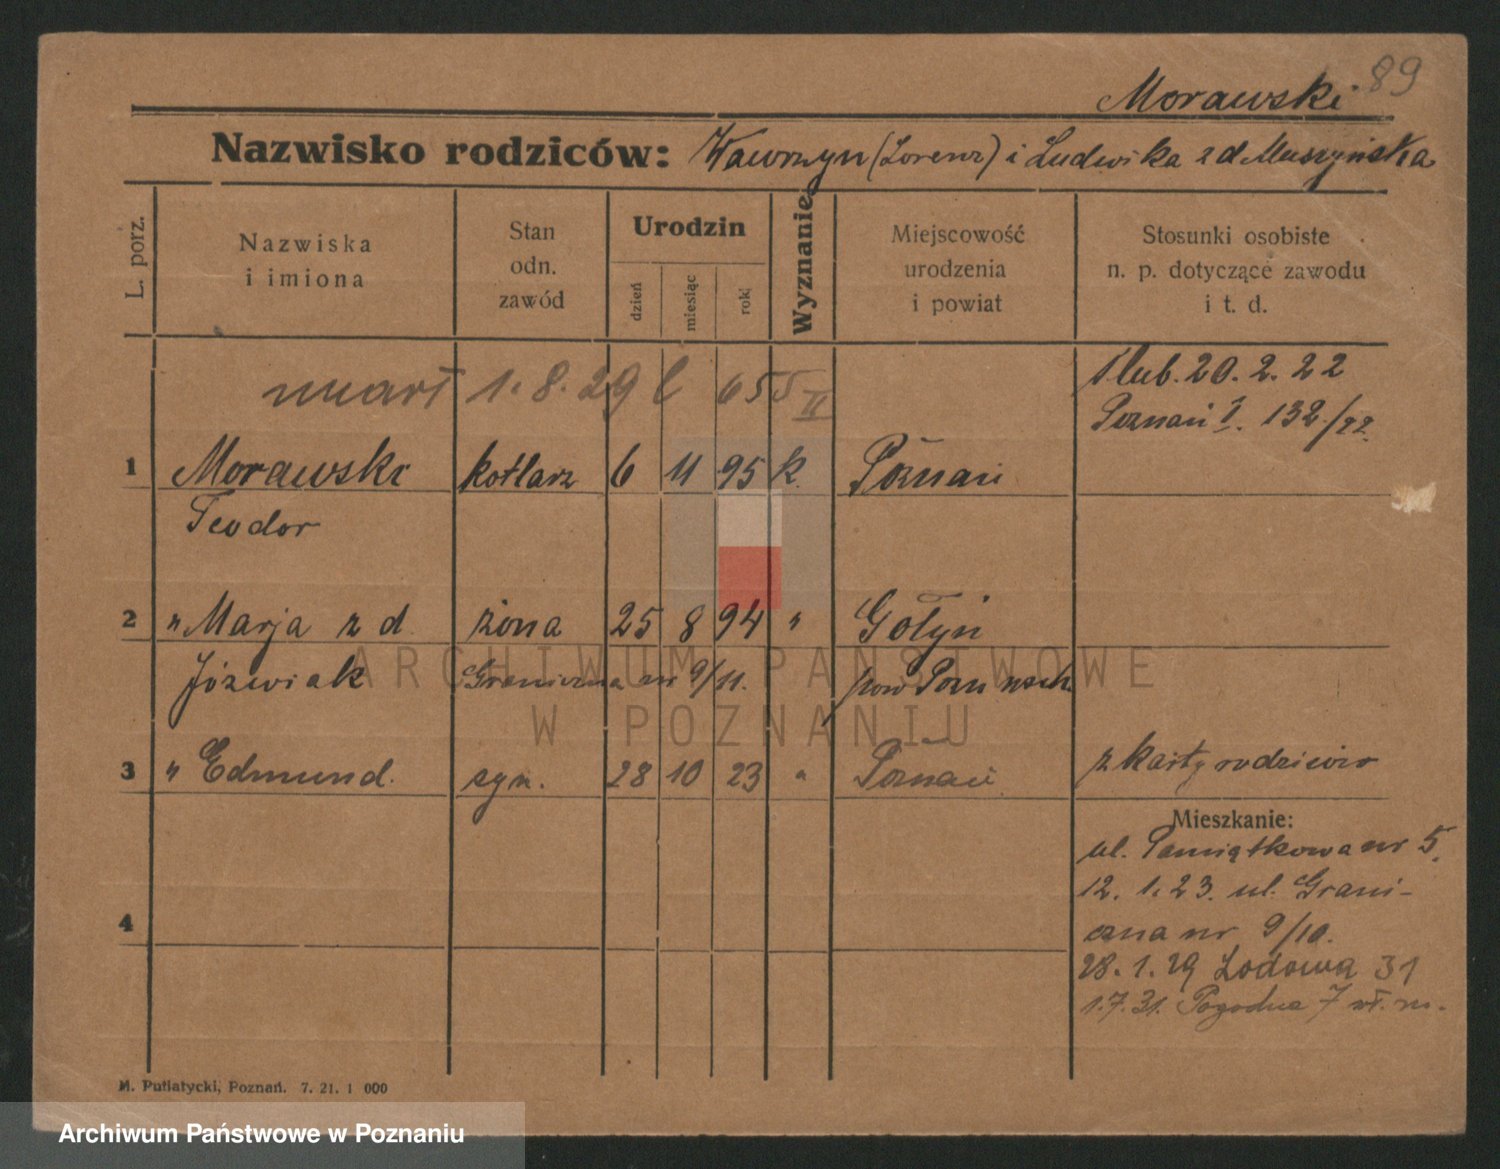 89
Morawski
Nazwisko rodziców: Wawrzyn (Lorenz) i Ludwika z d Muszyńska
L. porz.
Nazwiska
i imiona
Stan
odn.
zawód
Urodzin
dzień
miesiąc
rok
Wyznanie
Miejscowość
urodzenia
i powiat
Stosunki osobiste
n. p. dotyczące zawodu
i t. d.
umarł 1.8.29 655 II
ślub. 20. 2. 22
Poznań I. 132/22.
1 Morawski kotlarz 6 11 95 k. Poznań
Teodor
2 " Marja z d. żona 25 8 94 " Gołyń
Józwiak Graniczna nr 9/11. pow
ARCHIWUM PAŃSTWOWE
W POZNANIU
3 " Edmund. syn. 28 10 23 " Poznań z karty rodziców
Mieszkanie:
ul. Pamiątkowa nr 5.
12. 1. 23. ul. Grani-
4
czna nr 9/10.
28. 1. 29 Lodowa 31
1.7.31. Pogodna 7
M. Putiatycki, Poznań. 7. 21. 1 000
Archiwum Państwowe w Poznaniu